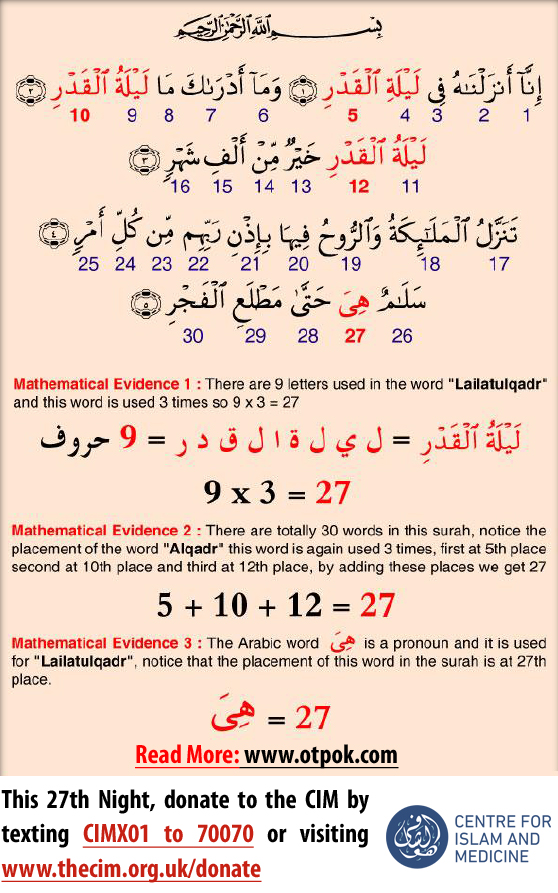 بِسْمِ اللَّهِ الرَّحْمَٰنِ الرَّحِيمِ
إِنَّآ أَنزَلْنَـٰهُ فِى لَيْلَةِ ٱلْقَدْرِ ۝١ وَمَآ أَدْرَىٰكَ مَا لَيْلَةُ ٱلْقَدْرِ ۝٢
1 2 3 4 5 6 7 8 9 10
لَيْلَةُ ٱلْقَدْرِ خَيْرٌ مِّنْ أَلْفِ شَهْرٍ ۝٣
11 12 13 14 15 16
تَنَزَّلُ ٱلْمَلَـٰٓئِكَةُ وَٱلرُّوحُ فِيهَا بِإِذْنِ رَبِّهِم مِّن كُلِّ أَمْرٍ ۝٤
17 18 19 20 21 22 23 24 25
سَلَـٰمٌ هِىَ حَتَّىٰ مَطْلَعِ ٱلْفَجْرِ ۝٥
26 27 28 29 30
Mathematical Evidence 1 : There are 9 letters used in the word "Lailatulqadr"
and this word is used 3 times so 9 x 3 = 27
لَيْلَةُ ٱلْقَدْرِ = ل ي ل ة ا ل ق د ر = 9 حروف
9 x 3 = 27
Mathematical Evidence 2 : There are totally 30 words in this surah, notice the
placement of the word "Alqadr" this word is again used 3 times, first at 5th place
second at 10th place and third at 12th place, by adding these places we get 27
5 + 10 + 12 = 27
Mathematical Evidence 3 : The Arabic word هِىَ is a pronoun and it is used
for "Lailatulqadr", notice that the placement of this word in the surah is at 27th
place.
هِىَ = 27
Read More: www.otpok.com
This 27th Night, donate to the CIM by
texting CIMX01 to 70070 or visiting
www.thecim.org.uk/donate
CENTRE FOR
ISLAM AND
MEDICINE